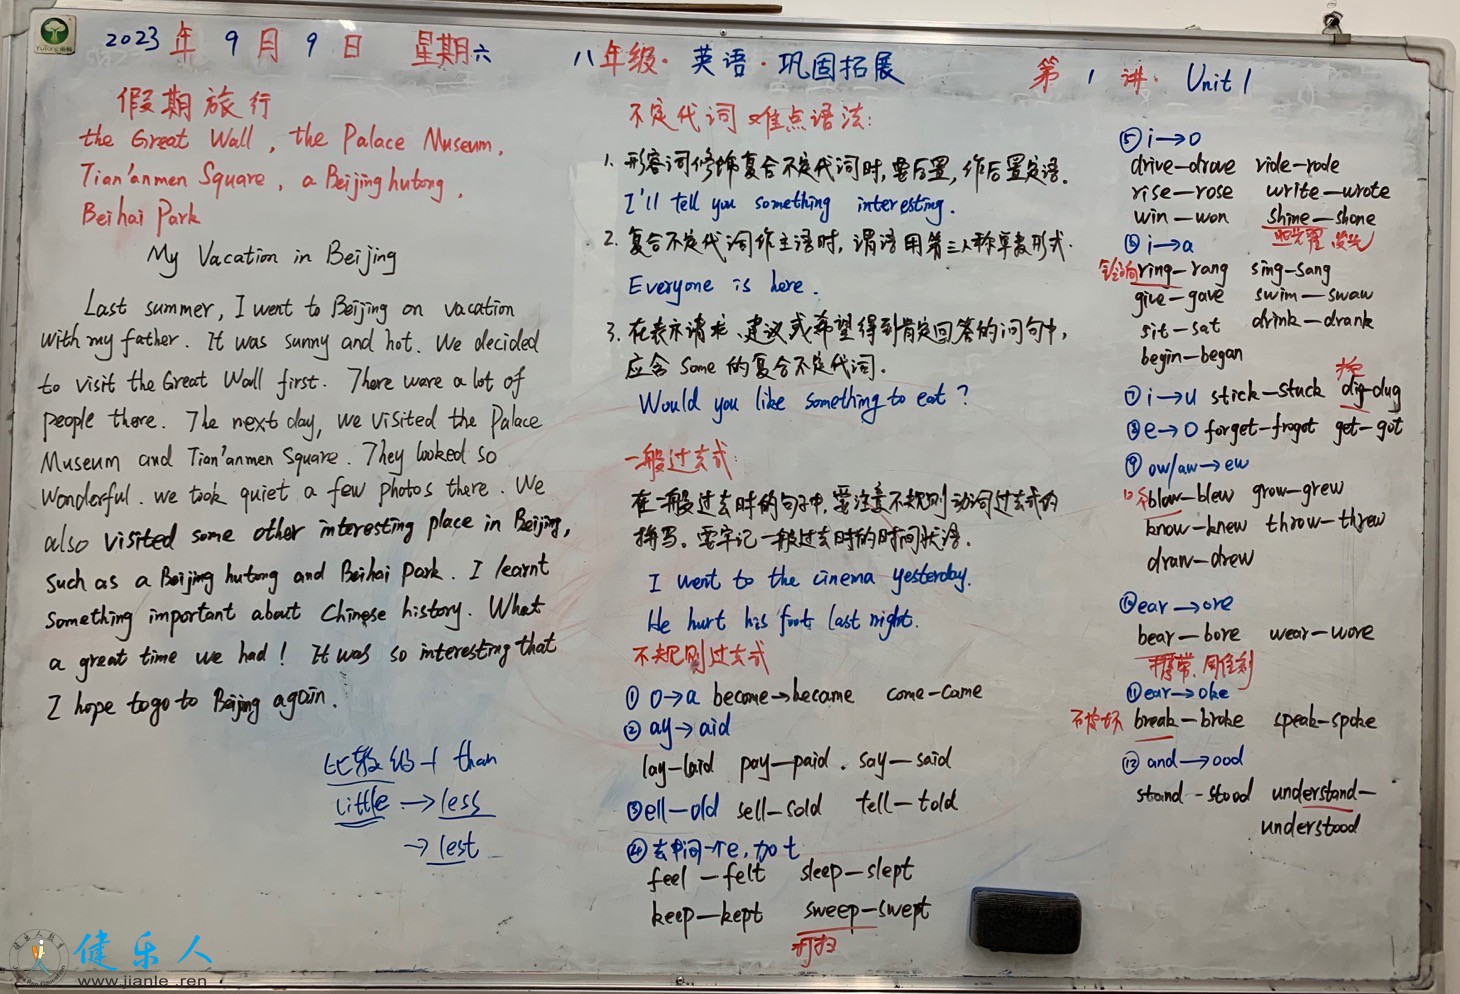 2023年9月9日 星期六
八年级·英语·巩固拓展
第1讲· Unit 1
假期旅行
the Great Wall, the Palace Museum,
Tian'anmen Square, a Beijing hutong,
Beihai Park
My Vacation in Beijing
Last summer, I went to Beijing on vacation
with my father. It was sunny and hot. We decided
to visit the Great Wall first. There were a lot of
people there. The next day, we visited the Palace
Museum and Tian'anmen Square. They looked so
wonderful. we took quiet a few photos there. We
also visited some other interesting place in Beijing,
such as a Beijing hutong and Beihai Park. I learnt
something important about Chinese history. What
a great time we had! It was so interesting that
I hope to go to Beijing again.
比较级+than
little→less
→lest
不定代词难点语法:
1. 形容词修饰复合不定代词时,要后置,作后置定语.
I'll tell you something interesting.
2. 复合不定代词作主语时,谓语用第三人称单数形式.
Everyone is here.
3. 在表示请求、建议或希望得到肯定回答的问句中,
应含some的复合不定代词.
Would you like something to eat?
一般过去式:
在一般过去时的句子中,要注意不规则动词过去式的
拼写。要牢记一般过去时的时间状语.
I went to the cinema yesterday.
He hurt his foot last night.
不规则过去式
① o→a become→became come-came
② ay→aid
lay-laid pay-paid. say-said
③ ell-old sell-sold tell-told
④ 去中间一个e,加t
feel-felt sleep-slept
keep-kept sweep-swept
打扫
⑤ i→o
drive-drove ride-rode
rise-rose write-wrote
win-won shine-shone
照耀 发光
⑥ i→a
铃响 ring-rang sing-sang
give-gave swim-swam
sit-sat drink-drank
begin-began
挖
⑦ i→u stick-stuck dig-dug
⑧ e→o forget-frogot get-got
⑨ ow/aw→ew
blow-blew grow-grew
know-knew throw-threw
draw-drew
⑩ ear→ore
bear-bore wear-wore
携带
⑪ ear→oke
break-broke speak-spoke
⑫ and→ood
stand-stood understand-
understood
健乐人
www.jianle.ren